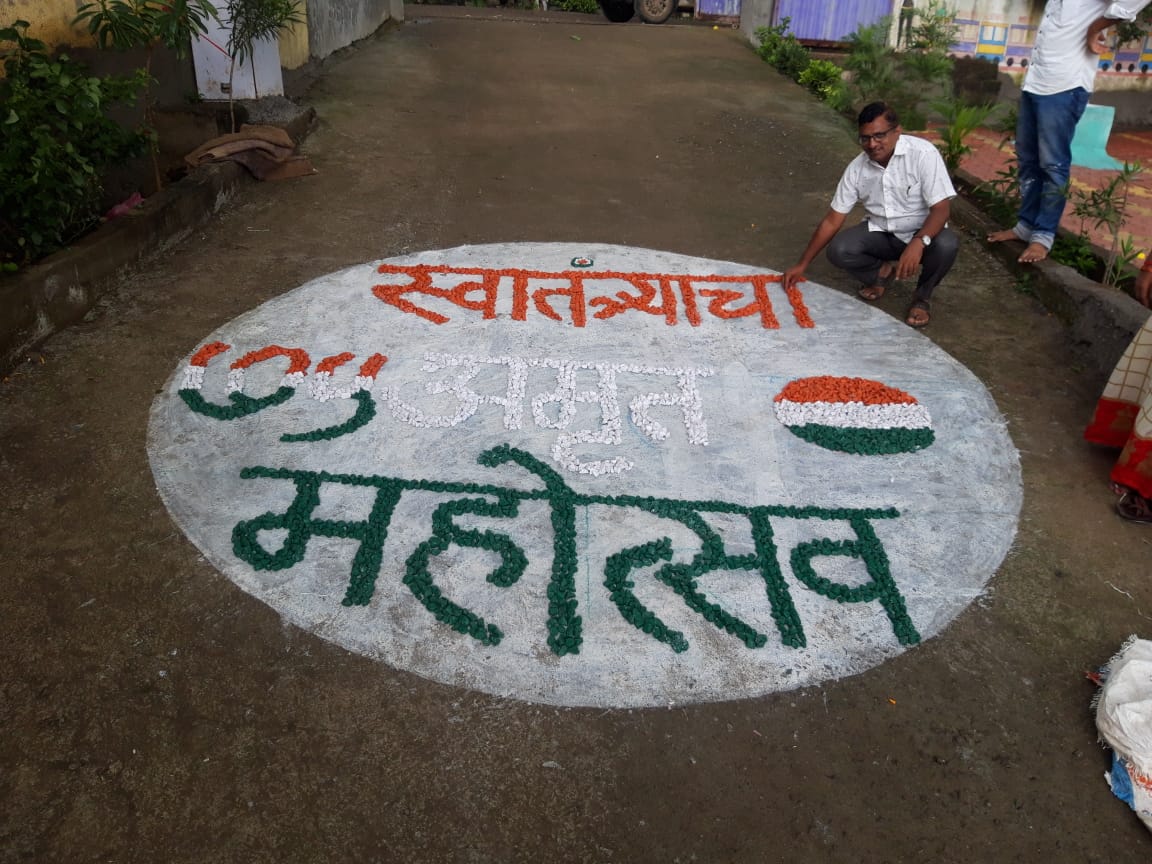 स्वातंत्र्याचा
७५ अमृत
महोत्सव